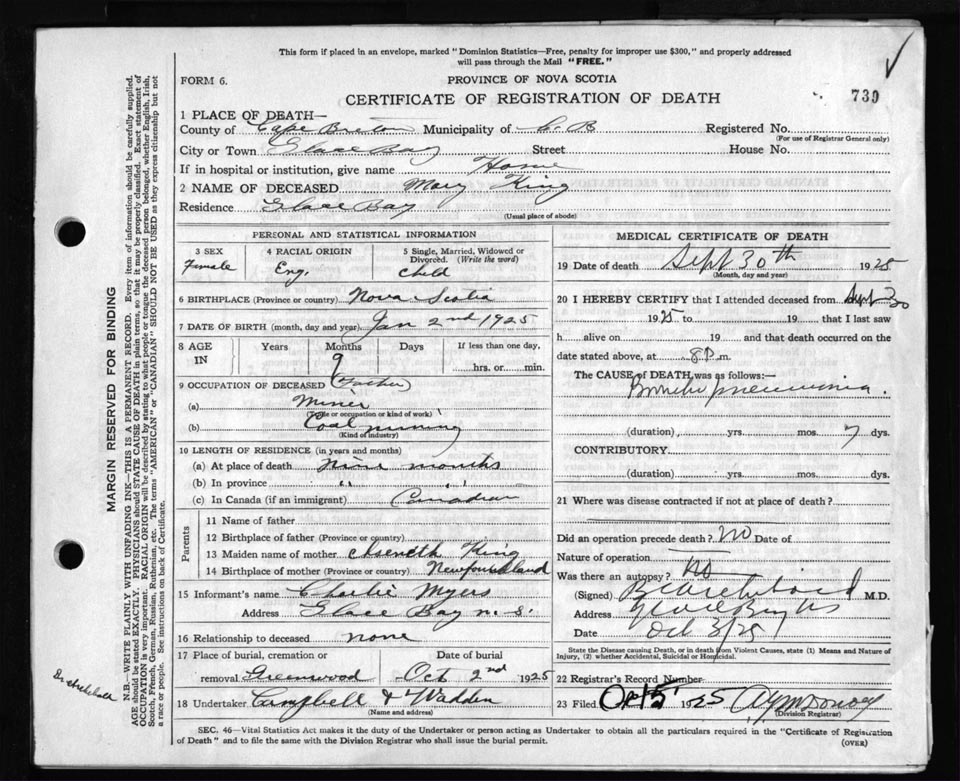 This form if placed in an envelope, marked "Dominion Statistics—Free, penalty for improper use $300," and properly addressed
will pass through the Mail "FREE."
FORM 6.
PROVINCE OF NOVA SCOTIA
739
CERTIFICATE OF REGISTRATION OF DEATH
1 PLACE OF DEATH—
County of Cape Breton Municipality of C. B Registered No.
(For use of Registrar General only)
City or Town Glace Bay Street House No.
If in hospital or institution, give name Home
2 NAME OF DECEASED Mary King
Residence Glace Bay
(Usual place of abode)
PERSONAL AND STATISTICAL INFORMATION
3 SEX 4 RACIAL ORIGIN 5 Single, Married, Widowed or
Divorced. (Write the word)
Female Eng. Child
6 BIRTHPLACE (Province or country) Nova Scotia
7 DATE OF BIRTH (month, day and year) Jan 2nd 1925
8 AGE IN Years Months Days If less than one day,
9 hrs. or min.
9 OCCUPATION OF DECEASED (Father)
(a) Miner
(Trade or occupation or kind of work)
(b) Coal mining
(Kind of industry)
10 LENGTH OF RESIDENCE (in years and months)
(a) At place of death nine months
(b) In province " "
(c) In Canada (if an immigrant) Canadian
Parents
11 Name of father
12 Birthplace of father (Province or country)
13 Maiden name of mother Aseneth King
14 Birthplace of mother (Province or country) Newfoundland
15 Informant's name Charlie Myers
Address Glace Bay N. S.
16 Relationship to deceased none
17 Place of burial, cremation or Date of burial
removal Greenwood Oct 2nd 1925
18 Undertaker Campbell & Wadden
(Name and address)
MEDICAL CERTIFICATE OF DEATH
19 Date of death Sept 30th 1925
(Month, day and year)
20 I HEREBY CERTIFY that I attended deceased from Sept 30
1925 to 19 that I last saw
h alive on 19 and that death occurred on the
date stated above, at 8 P. m.
The CAUSE OF DEATH was as follows:—
Broncho pneumonia.
(duration) yrs. mos. 7 dys.
CONTRIBUTORY
(duration) yrs. mos. dys.
21 Where was disease contracted if not at place of death?
Did an operation precede death? NO Date of
Nature of operation
Was there an autopsy? NO
(Signed) M.D.
Address Glace Bay NS
Date Oct 3/25
State the Disease causing Death, or in death from Violent Causes, state (1) Means and Nature of
Injury, (2) whether Accidental, Suicidal or Homicidal.
22 Registered's Record Number
23 Filed Oct 5 1925
(Division Registrar)
SEC. 46—Vital Statistics Act makes it the duty of the Undertaker or person acting as Undertaker to obtain all the particulars required in the "Certificate of Registration
of Death" and to file the same with the Division Registrar who shall issue the burial permit.
(OVER)
MARGIN RESERVED FOR BINDING
N.B.—WRITE PLAINLY WITH UNFADING INK—THIS IS A PERMANENT RECORD. Every item of information should be carefully supplied.
AGE should be stated EXACTLY. PHYSICIANS should STATE CAUSE OF DEATH in plain terms, so that it may be properly classified. Exact statement of
OCCUPATION is very important. RACIAL ORIGIN will be described by stating to what people or tongue the deceased person belonged, whether English, Irish,
Scotch, French, German, Russian, Ruthenian, etc. The terms "AMERICAN" or "CANADIAN" SHOULD NOT BE USED as they express citizenship but not
a race or people. See instructions on back of Certificate.